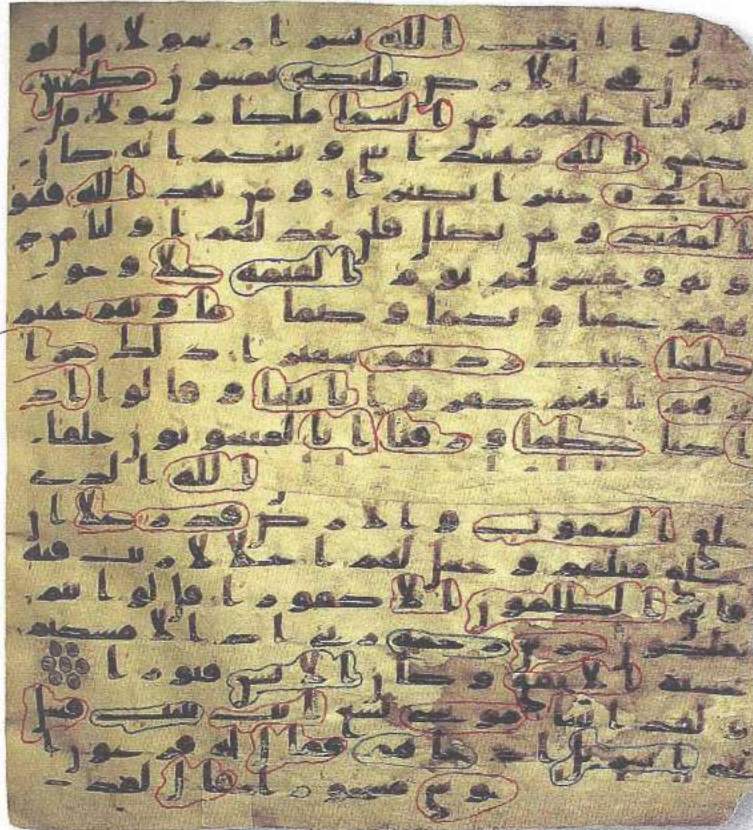 لوا ا بعث الله بشرا رسولا قل لو
كان في الارض مليكة يمشون مطمنين
لنزلنا عليهم من السما ملكا رسولا قل
كفى بالله شهيدا بيني وبينكم انه كان
بعباده خبيرا بصيرا ومن يهد الله فهو
المهتد ومن يضلل فلن تجد لهم اوليا من د
ونه ونحشرهم يوم القيمة على وجو
ههم عميا وبكما وصما ماويهم جهنم
كلما خبت زدنهم سعيرا ذلك جزا
وهم بانهم كفروا بايتنا وقالوا اذ
ا كنا عظما ورفتا انا لمبعوثون خلقا
الله الذي
خلق السموت والارض قدر على ان
يخلق مثلهم وجعل لهم اجلا لا ريب فيه
فابى الظلمون الا كفورا قل لو انتم
تملكون رحمة ربي اذا لامسكتم
خشية الانفق وكان الانسن قتورا
ولقد اتينا موسى تسع ايت بينت فسل
بني اسريل اذ جاهم فقال له فرعون
موسى مسحورا قال لقد